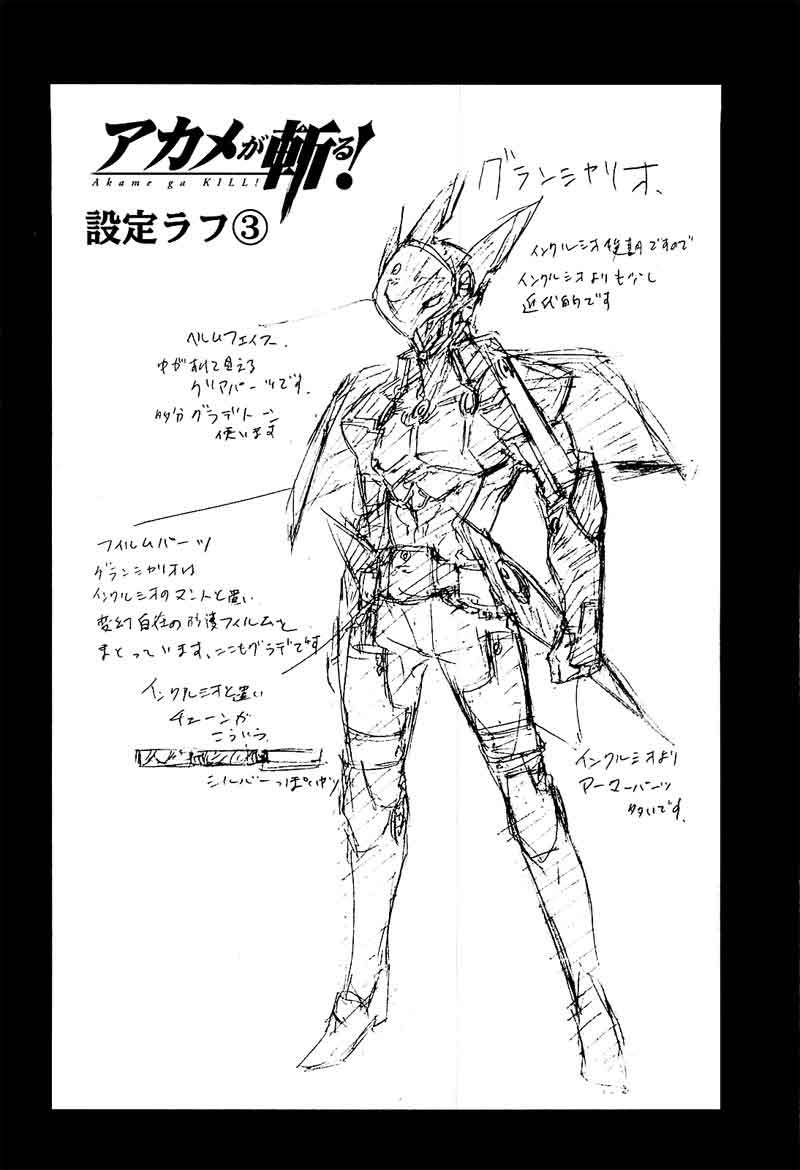 アカメが斬る!
Akame ga KILL!
設定ラフ③
グランシャリオ、
インクルシオ後期ですので
インクルシオよりも少し
近代的です
ヘルムフェイス、
ゆがんで見える
クリアパーツです。
多分グラデトーン
使います
フィルムパーツ
グランシャリオは
インクルシオのマントと違い
変幻自在の防護フィルムを
まとっています、ここもグラデです
インクルシオと違い
チェーンが
こういう
シルバーっぽいやつ
インクルシオより
アーマーパーツ
多いです。